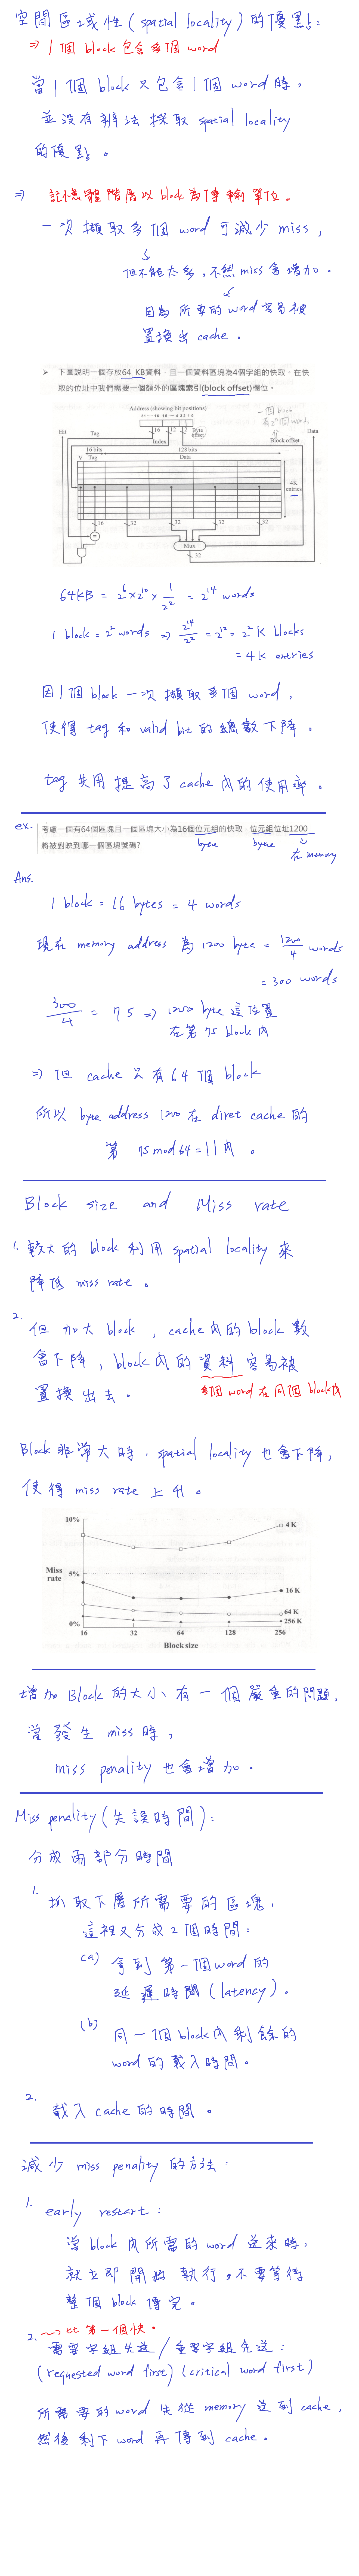 空間區域性(spatial locality)的優點:
⇒ 1個block包含多個word
當1個block只包含1個word時,
並沒有辦法採取spatial locality
的優點。
⇒ 記憶體階層以block為傳輸單位。
一次擷取多個word可減少miss,
但不能太多,不然miss會增加。
因為所要的word容易被
置換出cache。
➢ 下圖說明一個存放64 KB資料,且一個資料區塊為4個字組的快取。在快
取的位址中我們需要一個額外的區塊索引(block offset)欄位。
Address (showing bit positions)
31 ··· 16 15 ··· 4 3 2 1 0
一個block
有2²個words
Hit
Tag
16
12
2
Byte offset
Data
Index
Block offset
16 bits
128 bits
V Tag
Data
4K entries
16
32
32
32
32
=
Mux
32
64KB = 2⁶×2¹⁰×1/2² = 2¹⁴ words
1 block = 2² words ⇒ 2¹⁴/2² = 2¹² = 2² K blocks
= 4K entries
因1個block一次擷取多個word,
使得tag和valid bit的總數下降。
tag共用提高了cache內的使用率。
ex. 考慮一個有64個區塊且一個區塊大小為16個位元組的快取,位元組位址1200
將被對映到哪一個區塊號碼?
byte
byte
在memory
Ans.
1 block = 16 bytes = 4 words
現在memory address為1200 byte = 1200/4 words
= 300 words
300/4 = 75 ⇒ 1200 byte這位置
在第75 block內
⇒ 但cache只有64個block
所以byte address 1200在diret cache的
第 75 mod 64 = 11 內。
Block size and Miss rate
1. 較大的block利用spatial locality來
降低miss rate。
2. 但加大block,cache內的block數
會下降,block內的資料容易被
置換出去。
多個word在同個block內
Block非常大時,spatial locality也會下降,
使得miss rate上升。
10%
4 K
Miss rate
5%
16 K
64 K
0%
256 K
16 32 64 128 256
Block size
增加Block的大小有一個嚴重的問題,
當發生miss時,
miss penality也會增加。
Miss penality(失誤時間):
分成兩部分時間
1. 抓取下層所需要的區塊,
這裡又分成2個時間:
(a) 拿到第一個word的
延遲時間(latency)。
(b) 同一個block內剩餘的
word的載入時間。
2. 載入cache的時間。
減少miss penality的方法:
1. early restart:
當block內所需的word送來時,
就立即開始執行,不要等待
整個block傳完。
比第一個快。
2. 需要字組先送/重要字組先送:
(requested word first)(critical word first)
所需要的word先從memory送到cache,
然後剩下word再傳到cache。